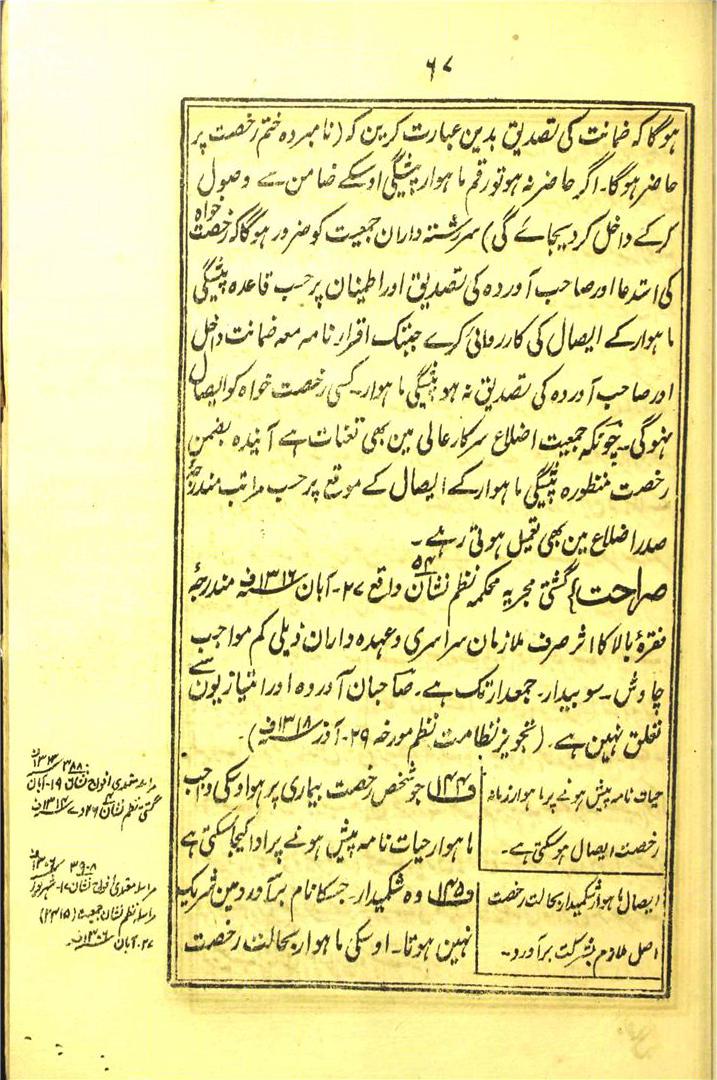 ۶۷
ہوگا کہ ضمانت کی تصدیق بدین عبارت کرین کہ (نامبردہ ختم رخصت پر
حاضر ہوگا۔ اگر حاضر نہ ہو تو رقم ماہوار پیشگی اوسکے ضامن سے وصول
کرکے داخل کردیجائے گی) سررشتہ داران جمعیت کو ضرور ہوگا کہ رخصت خواہ
کی استدعا اور صاحب آوردہ کی تصدیق اور اطمینان پر حسب قاعدہ پیشگی
ماہوار کے ایصال کی کارروائی کرے جبتک اقرار نامہ معہ ضمانت داخل
اور صاحب آوردہ کی تصدیق نہ ہو پیشگی ماہوار۔ کسی رخصت خواہ کو ایصال
نہوگی۔ چونکہ جمعیت اضلاع سرکار عالی مین بھی تعنات ہے آئندہ بضمن
رخصت منظورہ پیشگی ماہوار کے ایصال کے موقع پر حسب مراتب مندرجہ
صدر اضلاع مین بھی تعمیل ہوتی رہے۔
صراحت} گشتی مجریہ محکمہ نظم نشان ۵۴ واقع ۲۷۔ آبان ۱۳۱۶ف مندرجۂ
فقرۂ بالا کا اثر صرف ملازمان سراسری و عہدہ داران ذیلی کم مواجب
چاوش۔ سوبیدار۔ جمعدار تک ہے۔ صاحبان آوردہ اور امتیازیون سے
تعلق نہین ہے۔ (تجویز نظامت نظم مورخہ ۲۹۔ آذر ۱۳۱۸ف)۔
حیات نامہ پیش ہونے پر ماہوار زمانہ
رخصت ایصال ہوسکتی ہے۔
ف۱۴۴ جو شخص رخصت بیماری پر ہو اوسکی واجب
ماہوار حیات نامہ پیش ہونے پر ادا کیجاسکتی ہے
ایصال ماہوار شکمیدار بحالت رخصت
اصل ملازم بشرکت برآورد۔
ف۱۴۵ وہ شکمیدار۔ جسکا نام برآورد مین شریک
نہین ہوتا۔ اوسکی ماہوار بحالت رخصت
مراسلہ معتمدی افواج نشان ۱۹۔ آبان
گشتی نظم نشان ۲۶ دے
مراسلہ معتمدی افواج نشان ۱۷۔ شہریور
مراسلہ نظم نشان جمعیت (۲۳۱۵)
۲۷۔ آبان